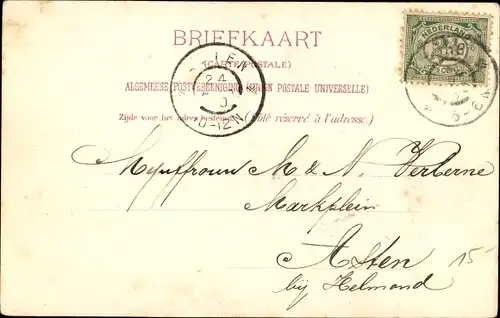 BRIEFKAART
(CARTE POSTALE)
ALGEMEENE POSTVEREENIGING (UNION POSTALE UNIVERSELLE)
Zijde voor het adres bestemd. (Côté réservé à l'adresse.)
NEDERLAND
24
Mejuffrouw M & N. Verberne
Markplein
Asten
bij Helmond
15